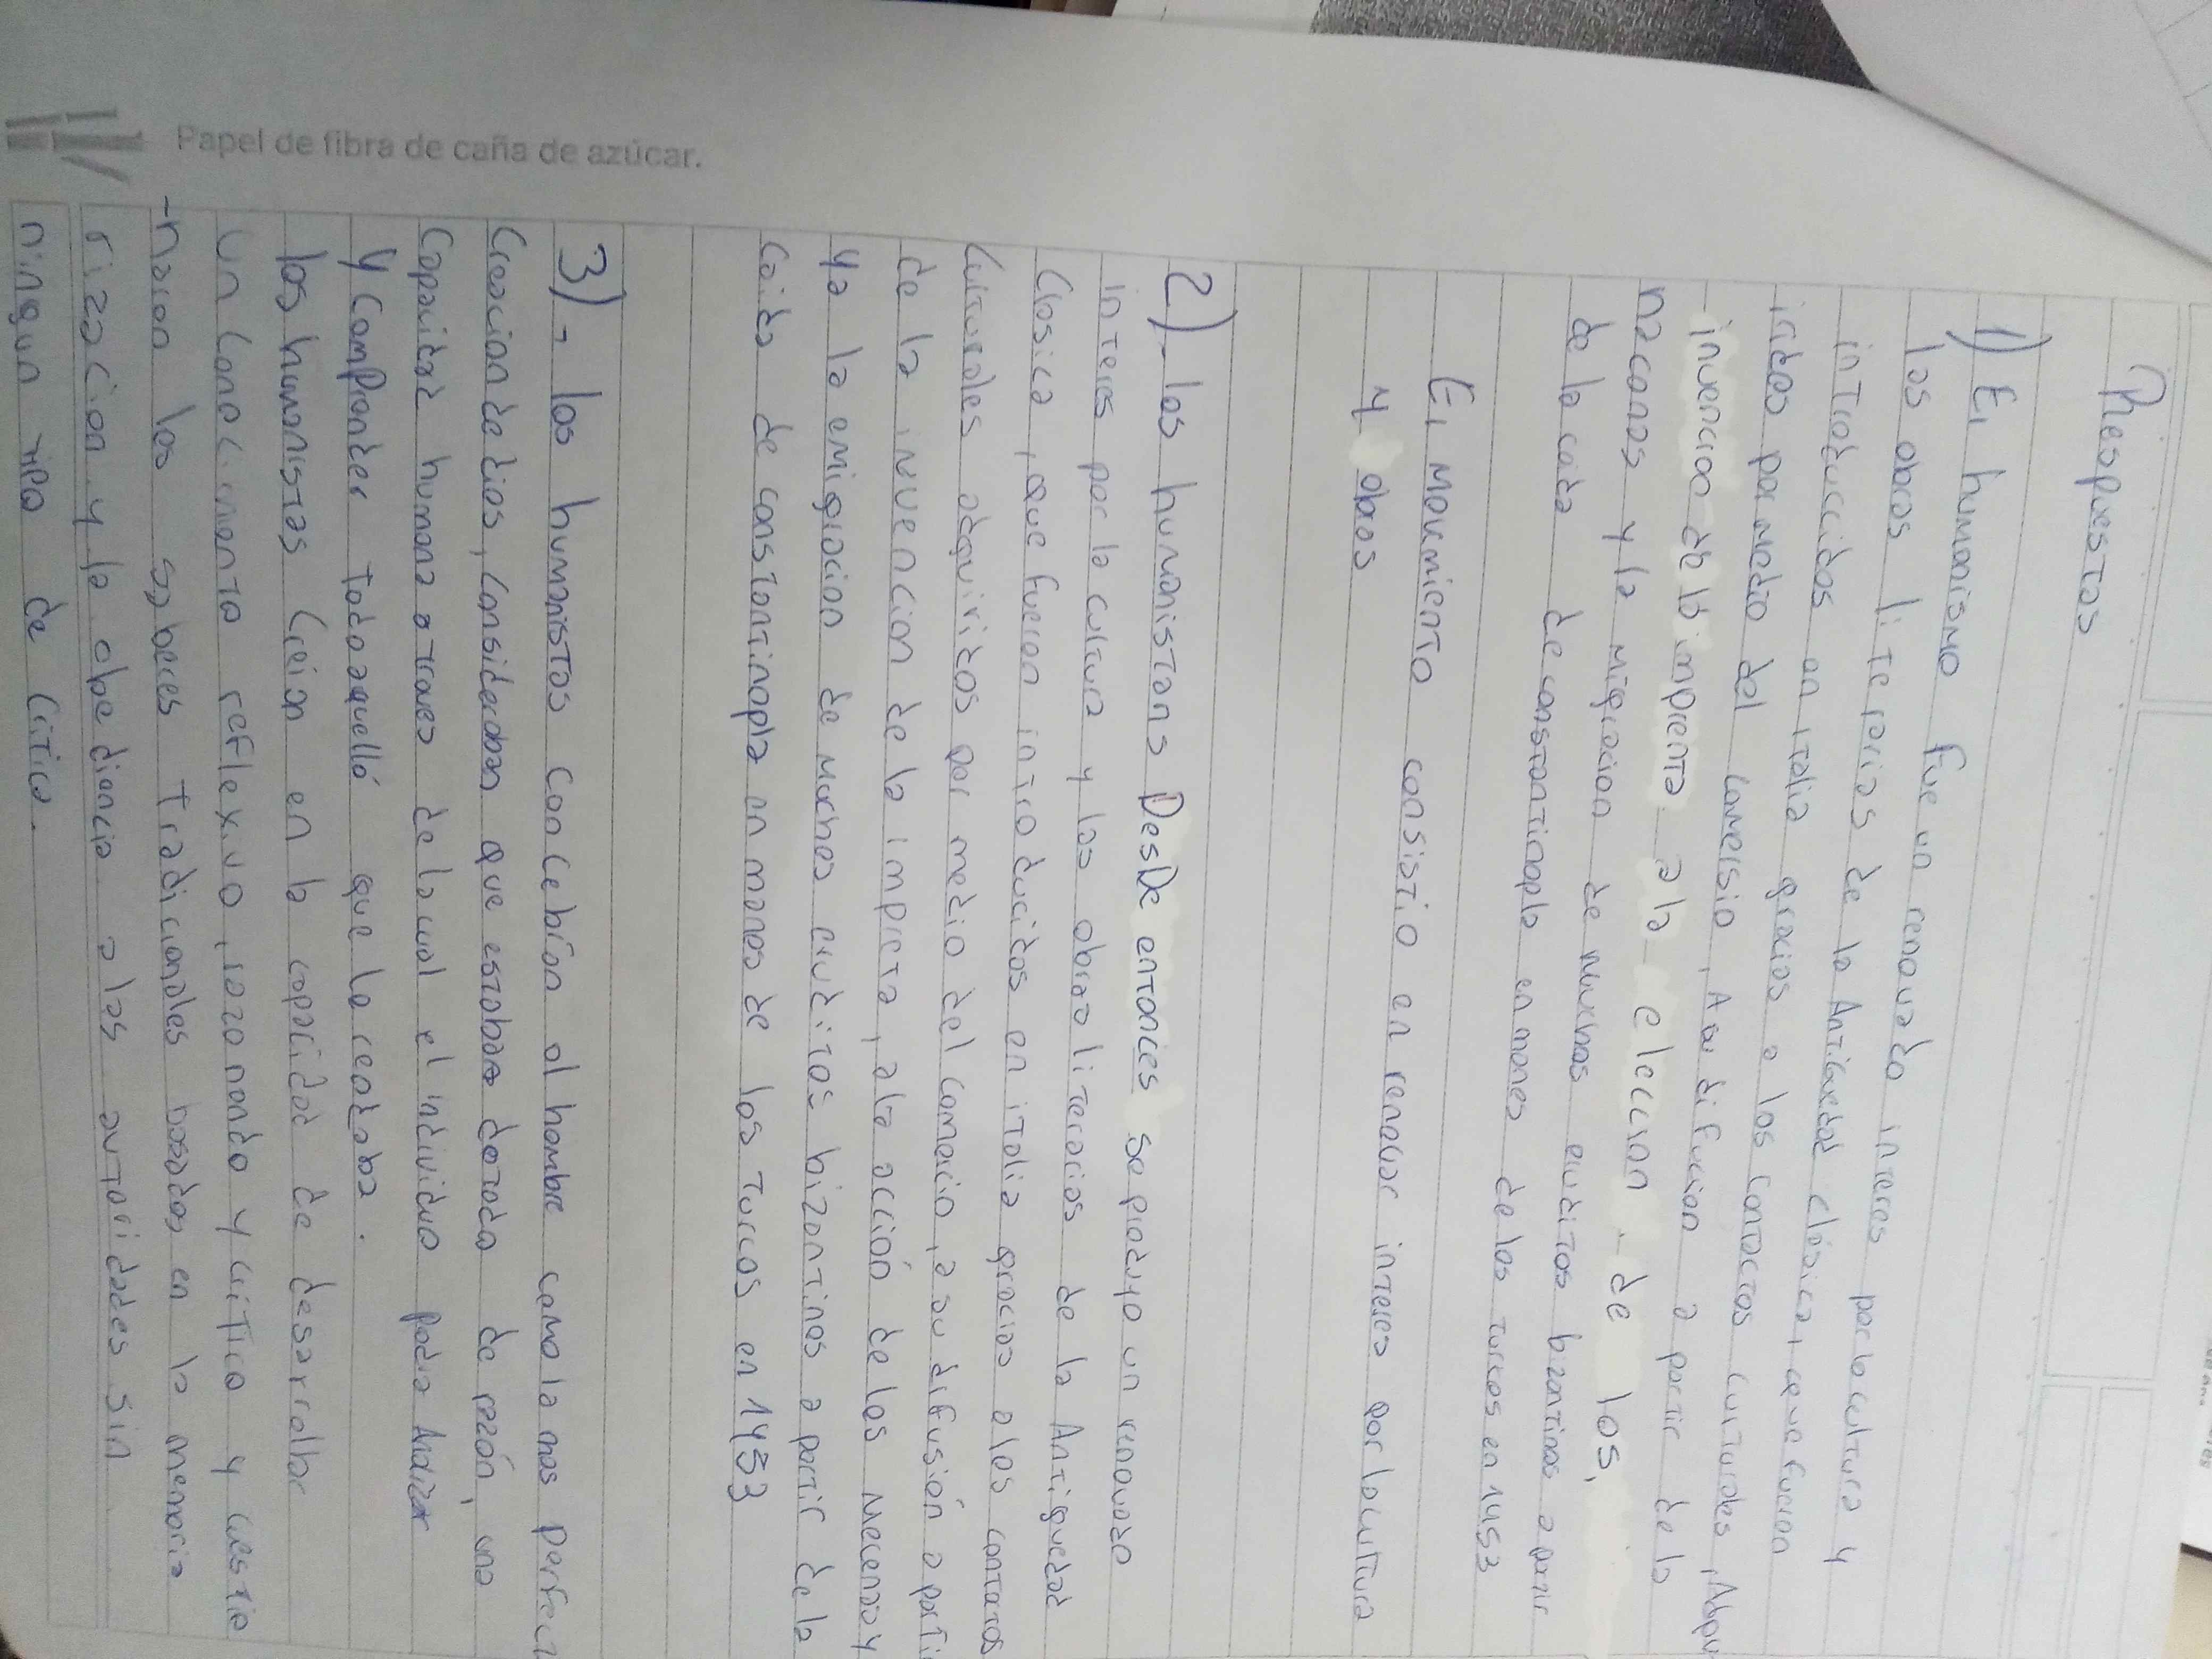 Respuestas
1) El humanismo fue un renovado interes por la cultura y
las obras literarias de la Antiguedad clásica, que fueron
introduccidas en italia gracias a los contactos culturales, Adqu
iridos por medio del comersio, A su difucion a partir de la
- invencion de la imprenta a la eleccion de los,
necanas y la migracion de muchas eruditos bizantinos a partir
de la caida de constantinopla en manos de los turcos en 1453
El movimiento consistio en renovar interes por la cultura
y obras
2)- los humanistans Desde entonces se produyo un renovado
interes por la cultura y las obras literarias de la Antiguedad
Clasica, que fueron introducidos en italia gracias a los contatos
Culturales adquiridos por medio del comercio, a su difusión a parti
de la invencion de la impreta, a la acción de los mecenas y
ya la emigracion de muchos eruditos bizantinos a partir de la
caida de constantinopla en manos de los turcos en 1453
3)- los humanistas concebían al hombre como la mas perfect
Creacion de dios, consideraban que estaban dotado de razón, una
Capacidad humana a traves de la cual el individuo podia Analizar
y comprender todo aquelló que lo rodeaba.
los humanistas creian en la capacidad de desarrollar
un conocimiento reflexivo, razonando y critico y cuestio
-naron los saberes tradicionales basados en la memoria
rizacion y la obediencia a las autoridades sin
ningun tipo de critica.
Papel de fibra de caña de azúcar.